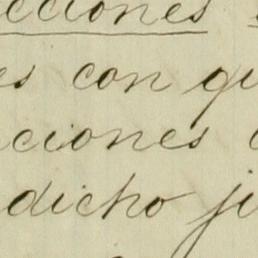 cciones
es con qu
ciones
dicho ji